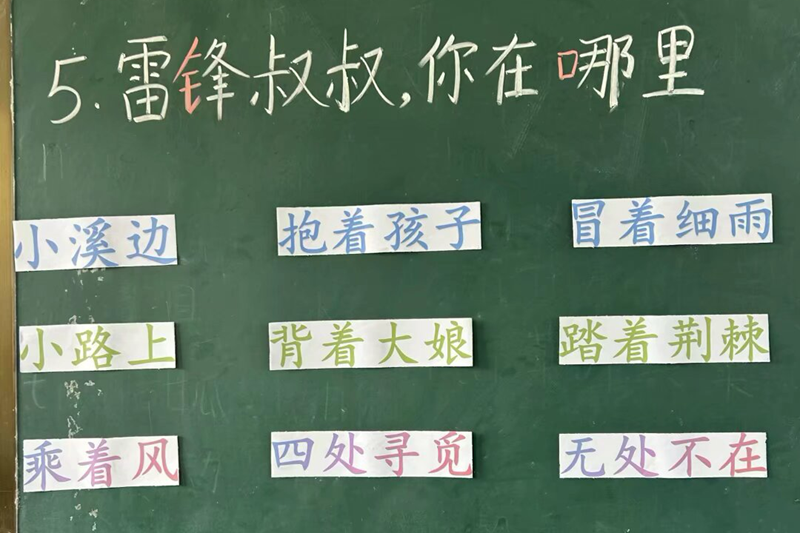 5.雷锋叔叔,你在哪里
小溪边 抱着孩子 冒着细雨
小路上 背着大娘 踏着荆棘
乘着风 四处寻觅 无处不在